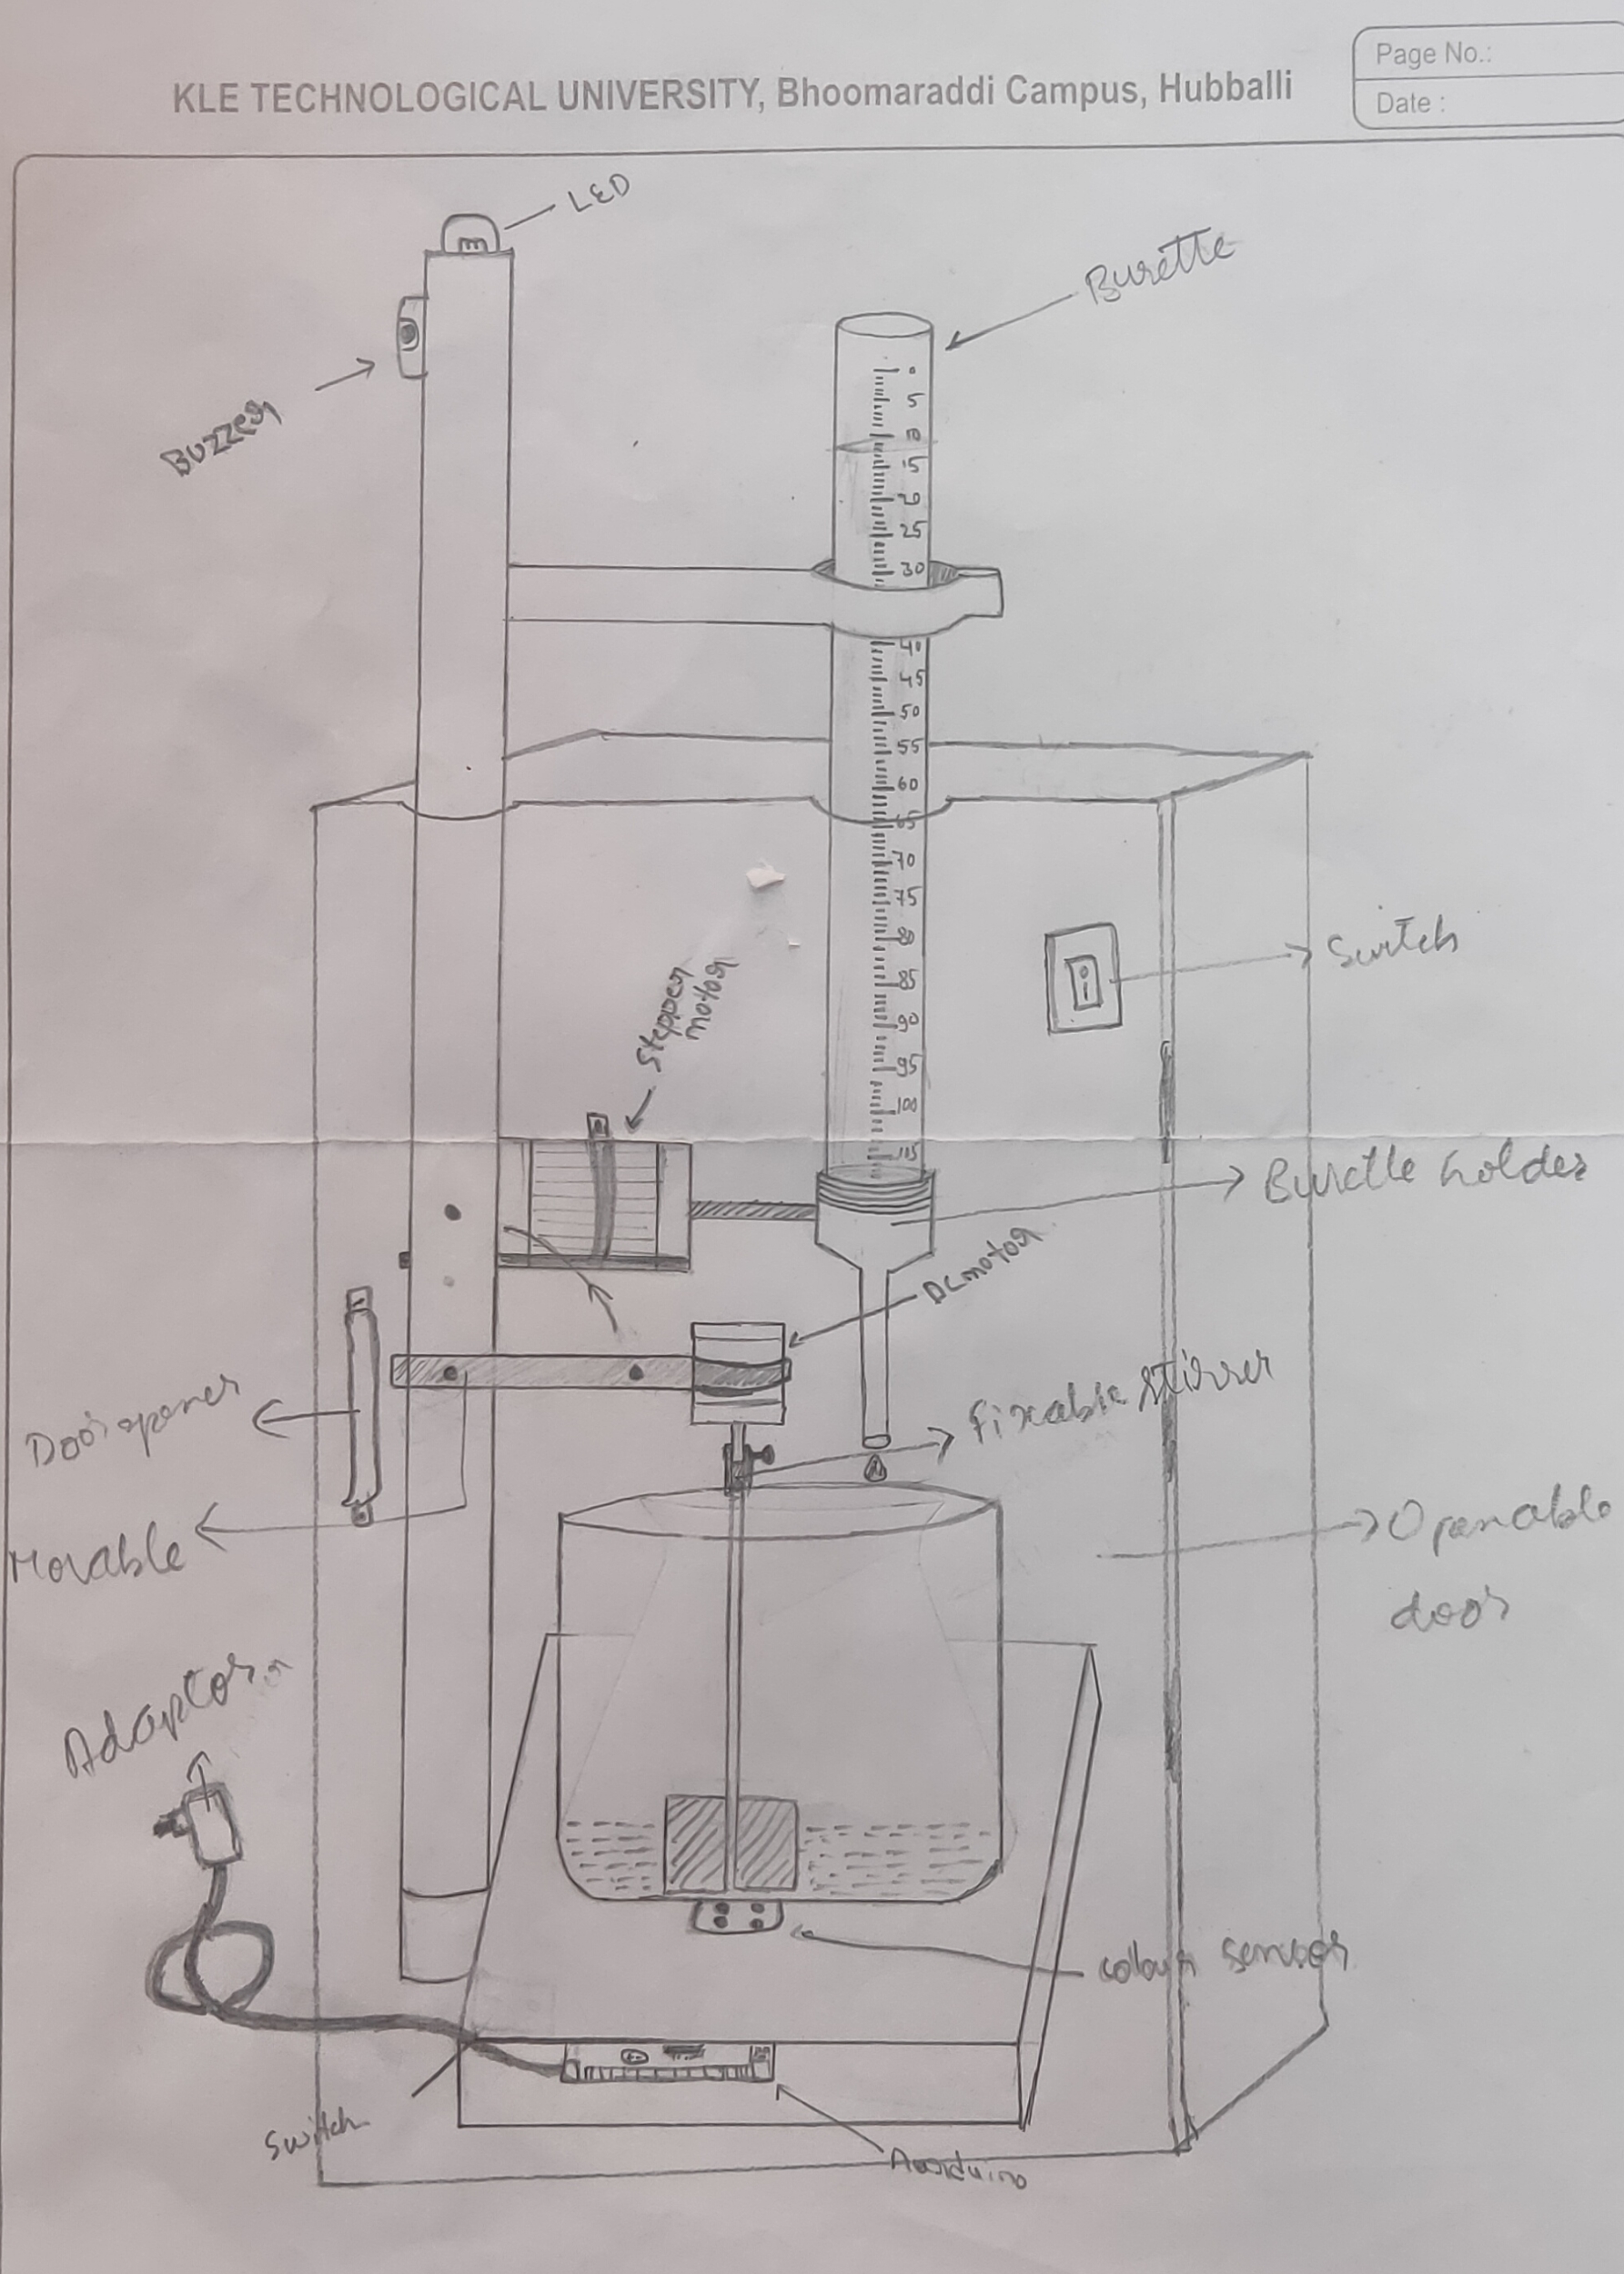 KLE TECHNOLOGICAL UNIVERSITY, Bhoomaraddi Campus, Hubballi
Page No.:
Date :
LED
Burette
Buzzer
0
5
10
15
20
25
30
40
45
50
55
60
65
70
75
80
85
90
95
100
105
Switch
Stepper
motor
Burette holder
DC motor
Fixable stirrer
Door opener
Movable
Openable
door
Adaptor
colour sensor
Switch
Aurduino